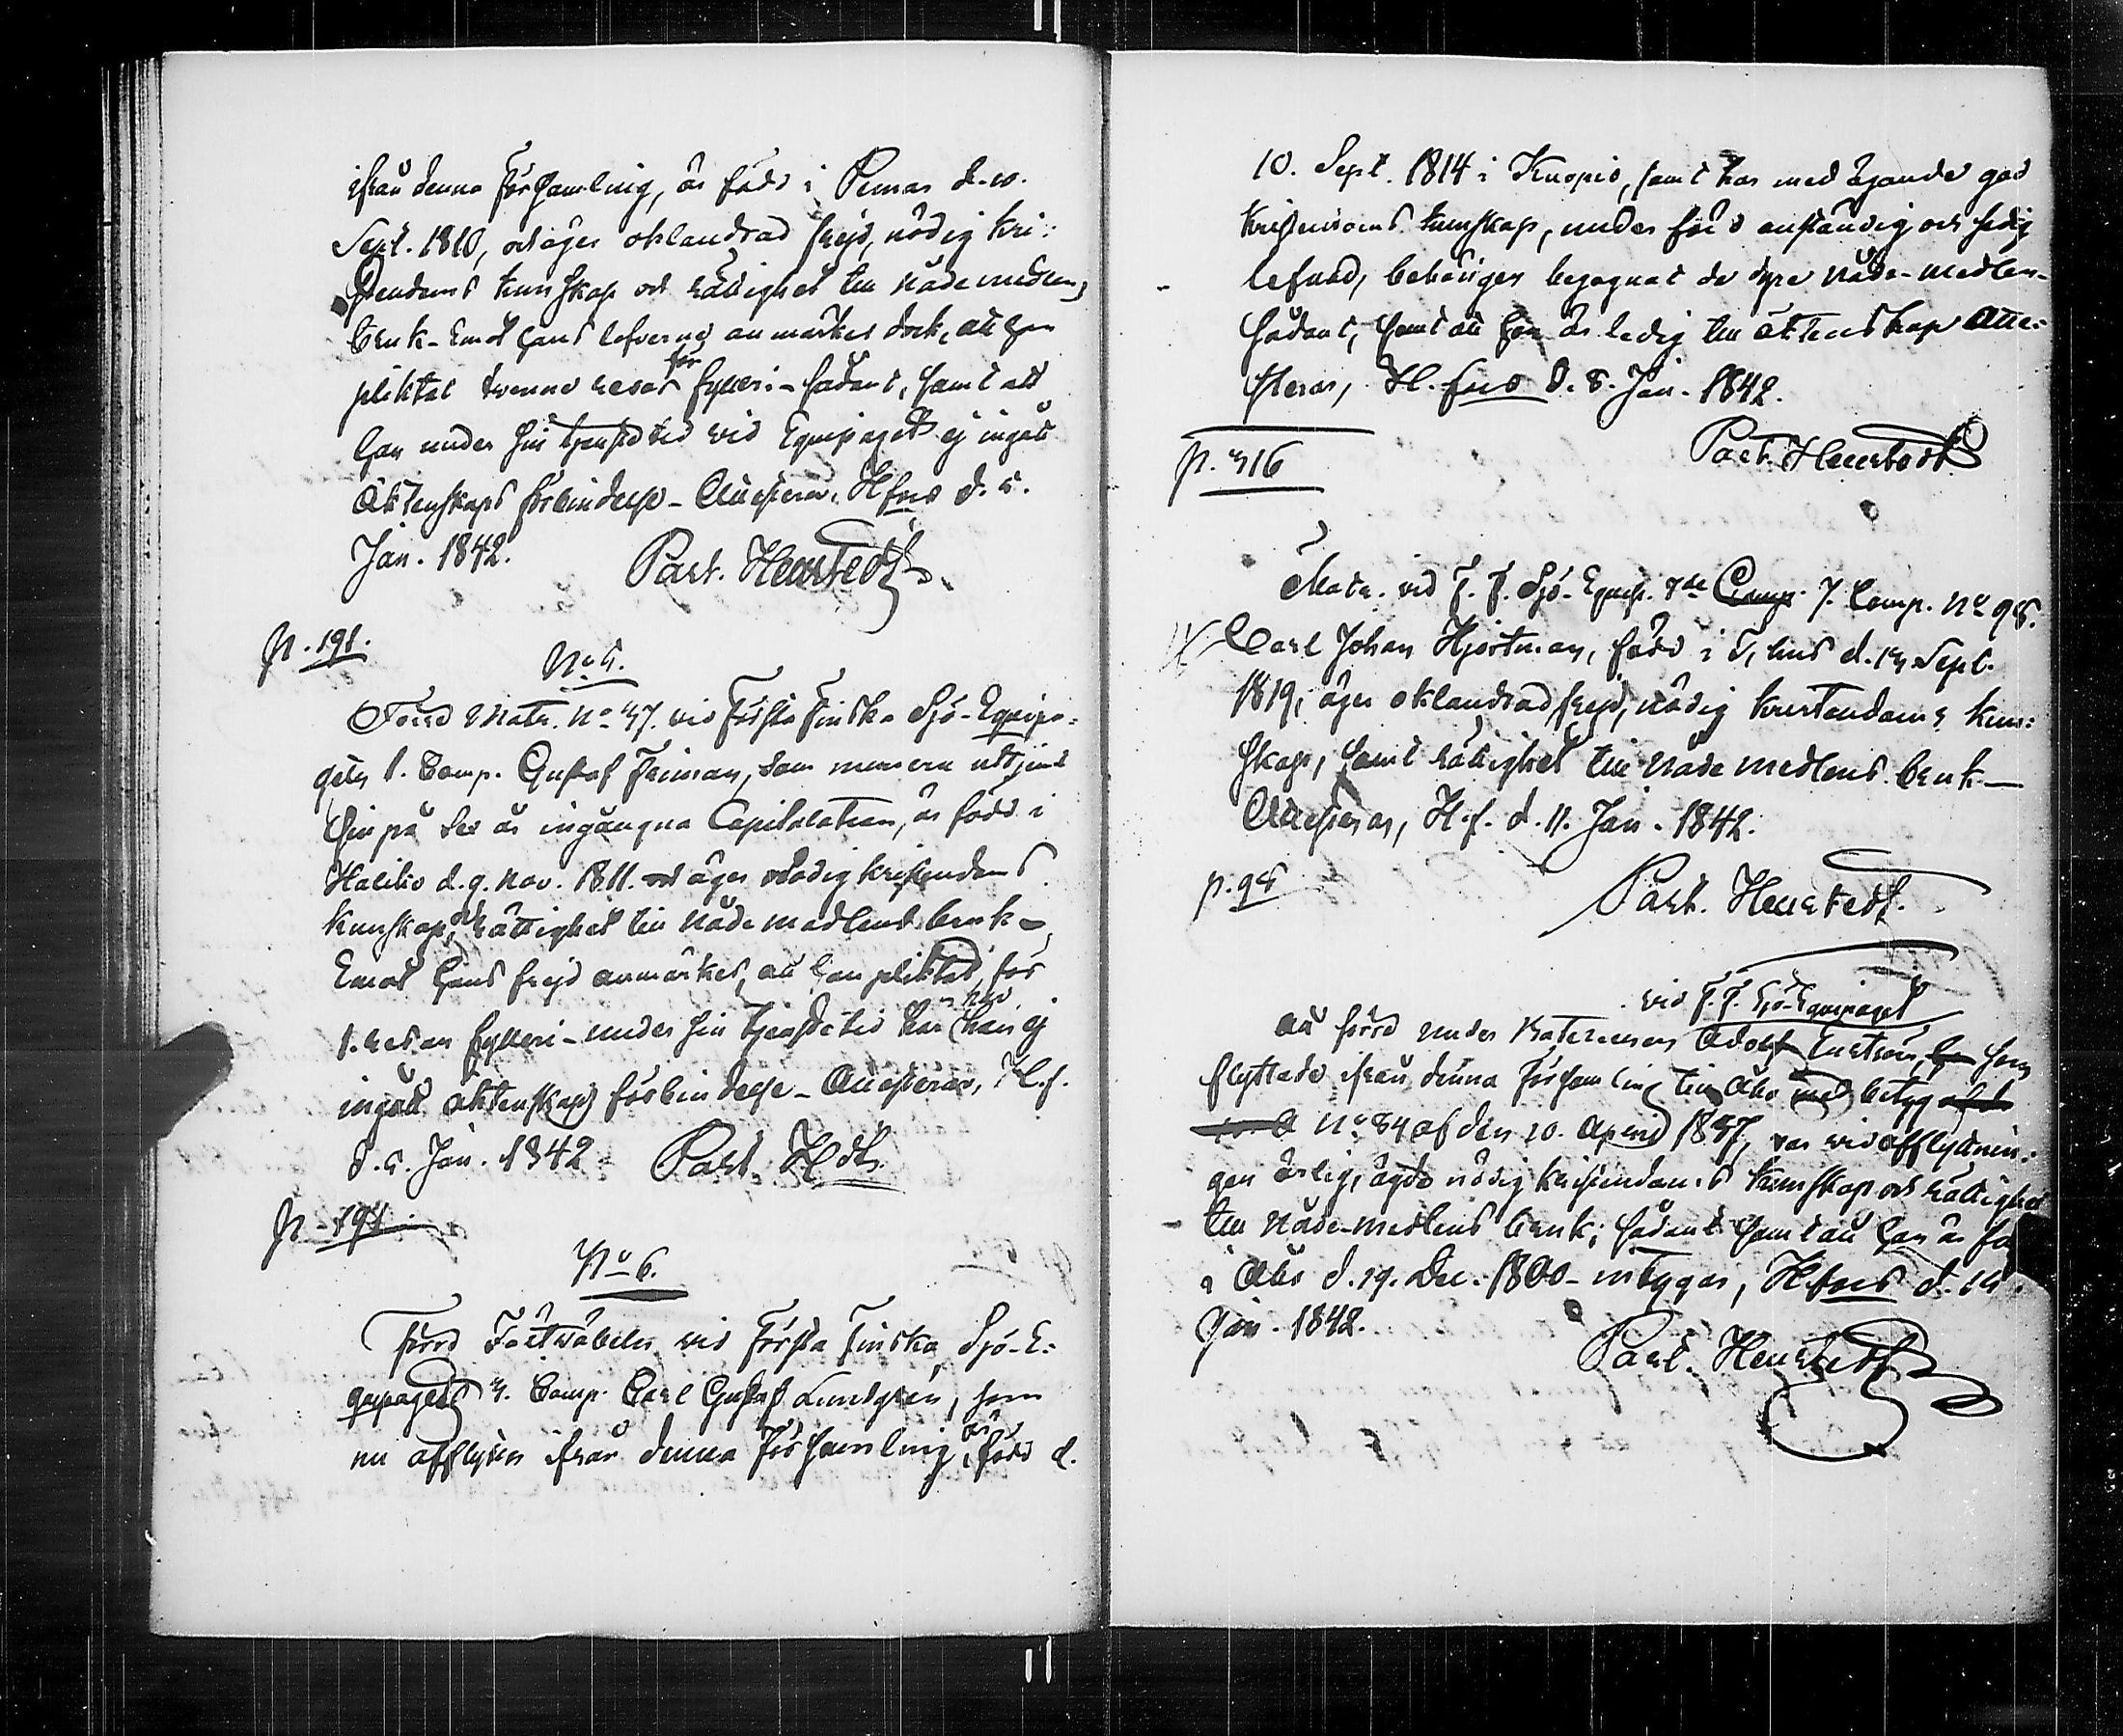 ifrån denna Församling, är född i Pemar d. 10.
Sept. 1810, och äger oklandrad frejd, nödig kri-
stendoms kunskap och rättighet till nådemedlens
bruk - Emot hans leverne anmärkes dock, att han
pliktat tvenne resor för fylleri - sådant, samt att
han under sin tjenstetid vid Equipaget ej ingått
Äktenskaps förbindelse - Attesterar, H.fors d. 5.
Jan. 1842. Past. Heurstedt
p. 191.
No 5.
Förre Matr. No 47. vid Första Finska Sjö-Equipa-
gets 1. Comp. Gustaf Friman, som numera uttjent
sin på sex år ingångna Capitulation, är född i
Halikko d. 9. Nov. 1811. äger nödig kristendoms
kunskap, och rättighet till nådemedlens bruk -
Emot hans frejd anmärkes, att han pliktat för
1. resan fylleri - under sin tjenstetid har han ej
ingått äktenskaps förbindelse - Attesterar, H.f.
d. 5. Jan. 1842 Past. Hdt.
p. 191.
No 6.
Förre Fältväbeln vid Första Finska Sjö-E-
quipaget 4. Comp. Carl Gustaf Lundgren, som
nu afflyttar ifrån denna Församling, är född d.
10. Sept. 1814 i Kuopio, samt har med ägande god
kristendoms kunskap, under förd anständig och sedig
lefnad, behörigen begagnat de dyra nåde-medlen -
sådant, samt att han är ledig till äktenskap atte-
sterar, H.fors d. 8. Jan. 1842.
Past. Heurstedt
p. 416
Matr. vid F. F. Sjö-Equip. Comp. 7. Comp. No 98.
Carl Johan Hjortman, född i d. Sept.
1819, äger oklandrad frejd, nödig kristendoms kun-
skap, samt rättighet till nådemedlens bruk -
Attesteras, H.f. d. 11. Jan. 1842.
p. 95
Past. Heurstedt.
vid F. F. Sjö-Equipaget
att förre under Adolf som
flyttade ifrån denna församling till Åbo med betyg
No 84 af den 20. 1837, var vid afflyttnin-
gen ärlig, ägde nödig kristendoms kunskap och rättighet
till nåde-medlens bruk; sådant samt att han är fö
i Åbo d. 29. Dec. 1800 - intygar, H.fors d. 14.
Jan. 1842.
Past. Heurstedt